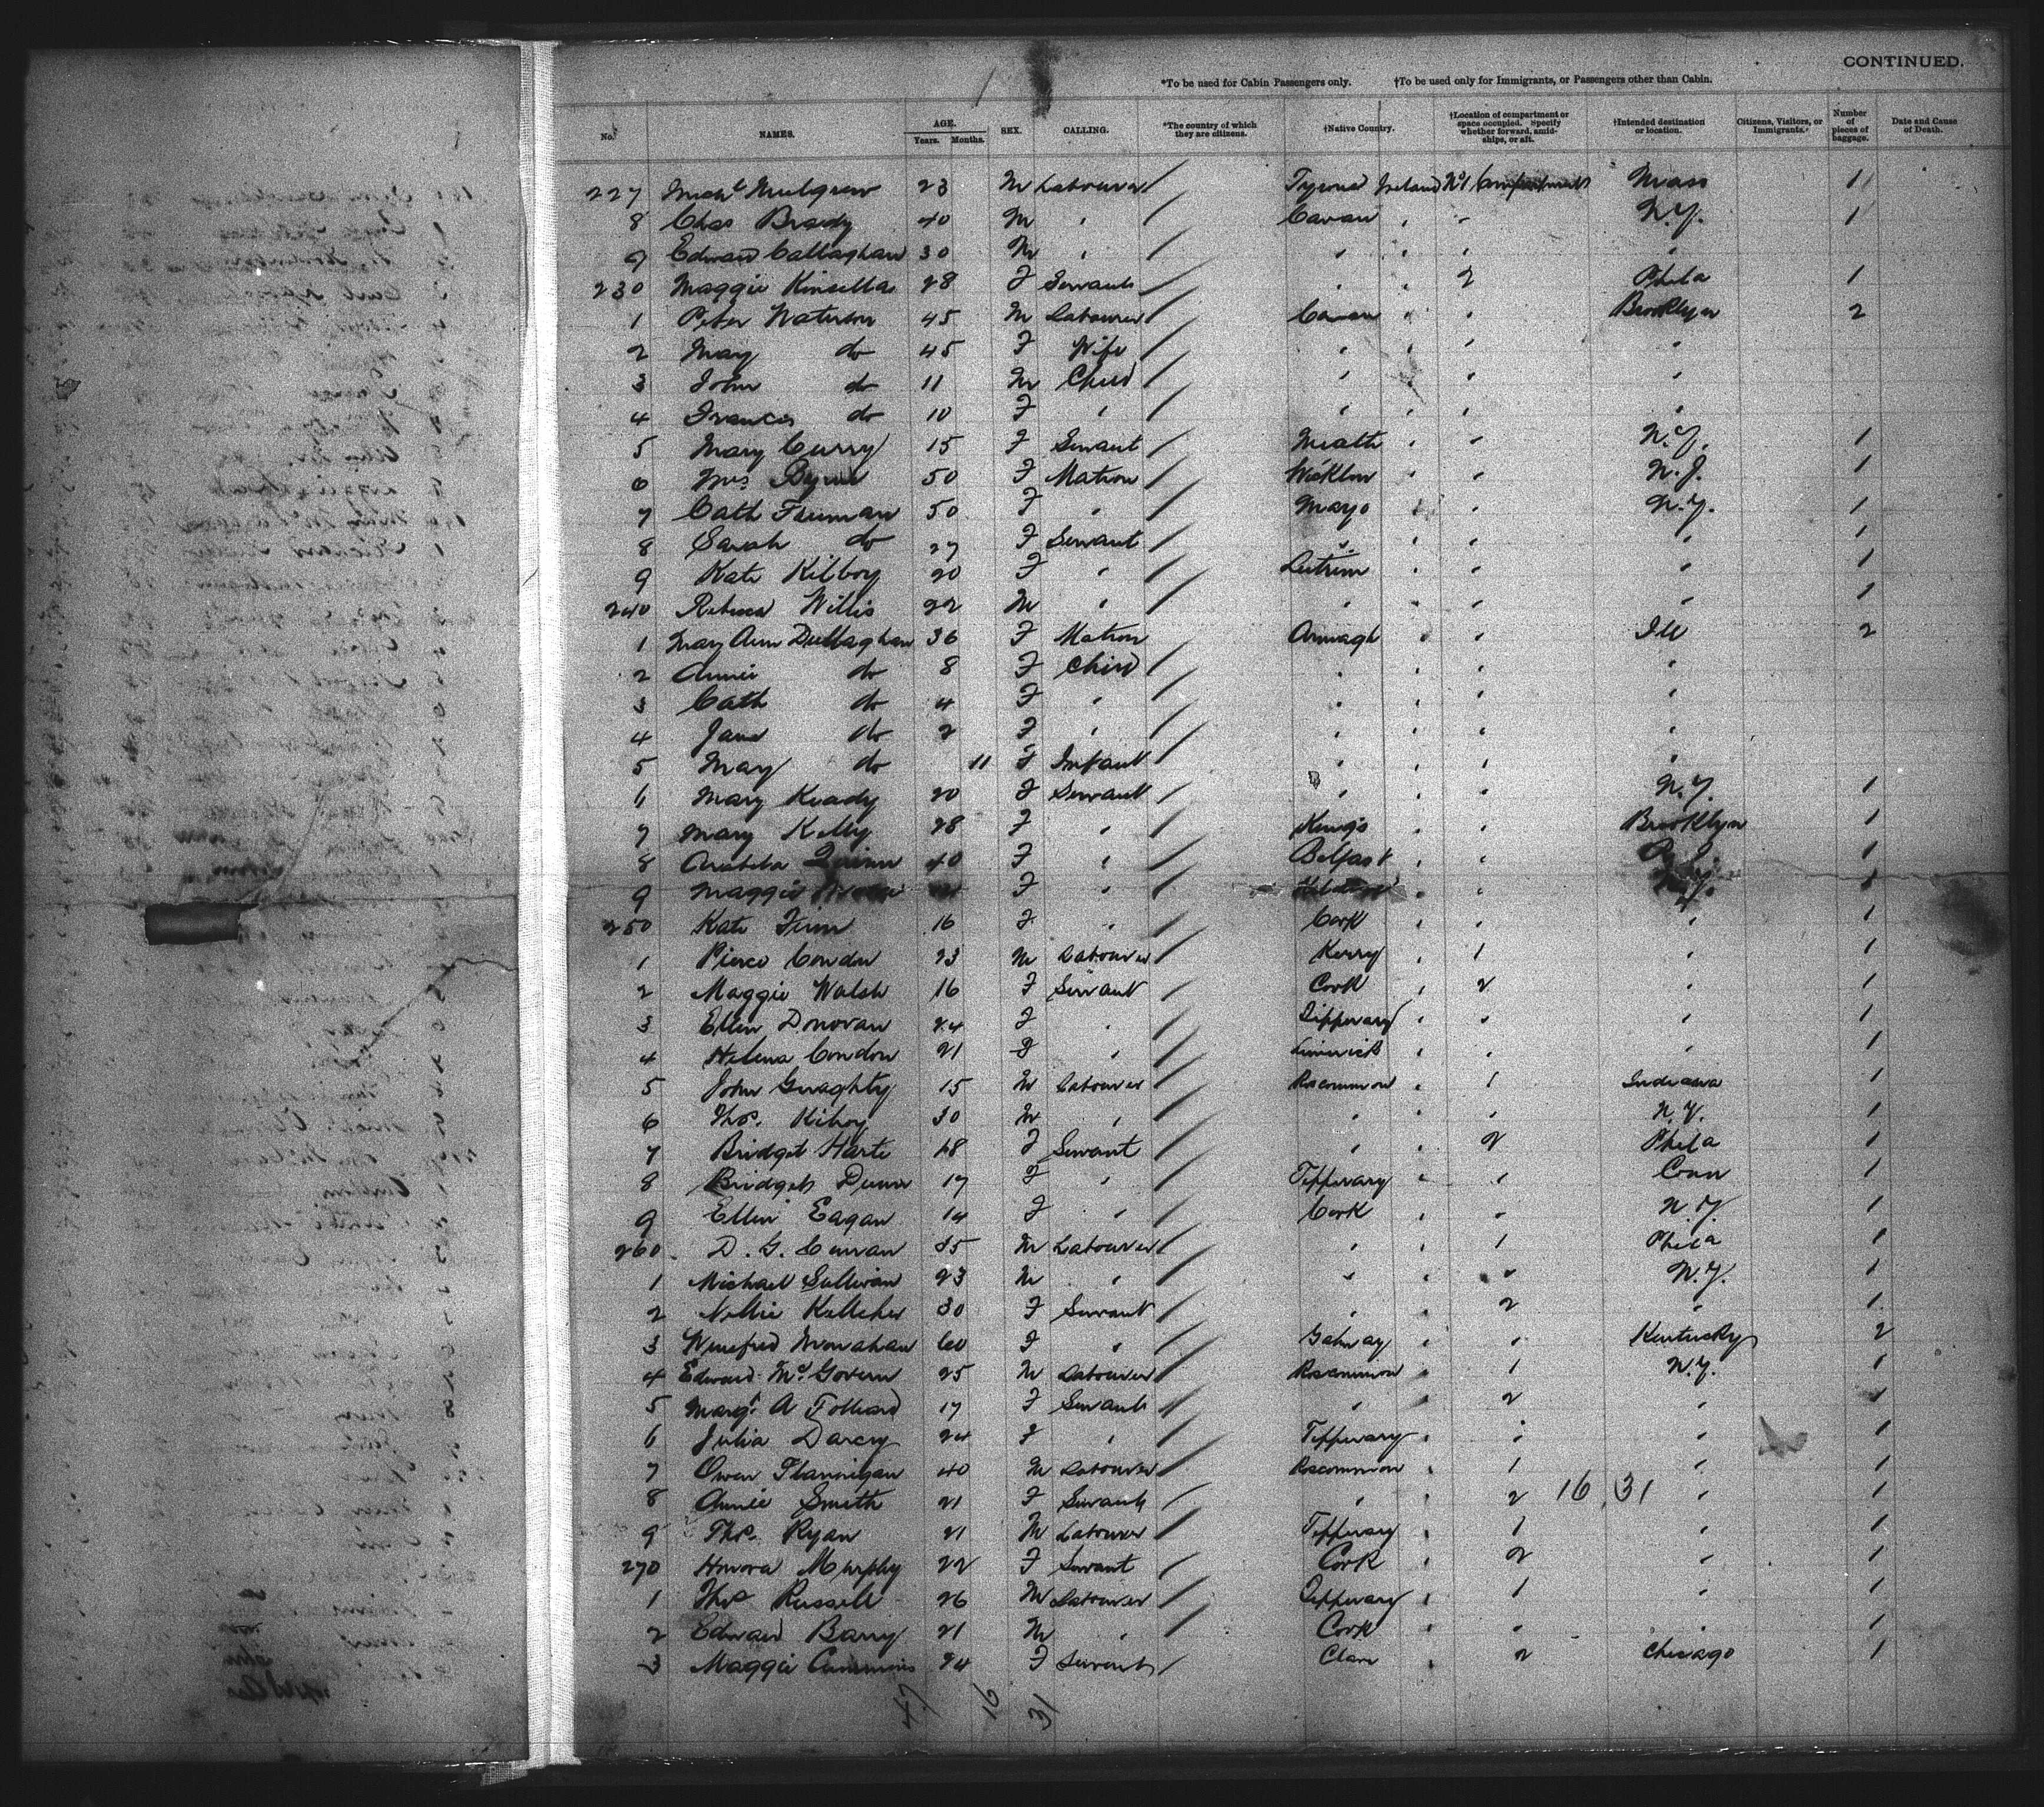 CONTINUED.
*To be used for Cabin Passengers only. †To be used only for Immigrants, or Passengers other than Cabin.
No. NAMES. AGE. Years. Months. SEX. CALLING. *The country of which they are citizens. †Native Country. †Location of compartment or space occupied. Specify whether forward, amidships, or aft. †Intended destination or location. Citizens, Visitors, or Immigrants. Number of pieces of baggage. Date and Cause of Death.
227 Mich^l Mulgrew 23 M Labourer Tyrone Ireland No 1 Compartment Mass 1
8 Chas Brady 40 M " Cavan " " N.Y. 1
9 Edward Callaghan 30 M " " " " "
230 Maggie Kinsella 28 F Servant " " 2 Phila 1
1 Peter 45 M Labourer Cavan " " Brooklyn 2
2 May do 45 F Wife " " " "
3 John do 11 M Child " " " "
4 Frances do 10 F " " " " "
5 Mary Curry 15 F Servant Meath " " N.Y. 1
6 Mrs Byrne 50 F Matron Wicklow " " N.J. 1
7 Cath Freeman 50 F " Mayo " " N.Y. 1
8 Sarah do 27 F Servant " " " " 1
9 Kate Kilboy 20 F " Leitrim " " " 1
240 Willis 22 M " " " " " 1
1 Mary Ann Dullaghan 36 F Matron Armagh " " Ill 2
2 Annie do 8 F Child " " " "
3 Cath do 4 F " " " " "
4 Jane do 2 F " " " " "
5 May do 11 F Infant " " " "
6 Mary Keady 20 F Servant " " " N.Y. 1
7 Mary Kelly 28 F " Kings " " Brooklyn 1
8 Quinn 40 F " Belfast " " 1
9 Maggie F " " " 1
250 Kate Finn 16 F " Cork " " " 1
1 Pierce Condon 23 M Labourer Kerry " 1 " 1
2 Maggie Walsh 16 F Servant Cork " 2 " 1
3 Ellen Donovan 24 F " Tipperary " " " 1
4 Helena Condon 21 F " Limerick " " " 1
5 John Geraghty 15 M Labourer Roscommon " 1 Indiana 1
6 Thos. Kilroy 30 M " " " " N.Y. 1
7 Bridget Harte 18 F Servant " " 2 Phila 1
8 Bridget Dunn 17 F " Tipperary " " Conn 1
9 Ellen Eagan 14 F " Cork " " N.Y. 1
260 D. G. Curran 35 M Labourer " " 1 Phila 1
1 Michael Sullivan 23 M " " " " N.Y. 1
2 Nellie Kelleher 30 F Servant " " 2 " 1
3 Winefred Monahan 60 F " Galway " " Kentucky 2
4 Edward McGovern 25 M Labourer Roscommon " 1 N.Y. 1
5 Margt. A Folliard 17 F Servant " " 2 " 1
6 Julia Darcy 24 F " Tipperary " " " 1
7 Owen Flannigan 40 M Labourer Roscommon " 1 " 1
8 Annie Smith 21 F Servant " " 2 16 31 " 1
9 Thos. Ryan 21 M Labourer Tipperary " 1 " 1
270 Honora Murphy 22 F Servant Cork " 2 " 1
1 Thos Russell 26 M Labourer Tipperary " 1 " 1
2 Edward Barry 21 M " Cork " " " 1
3 Maggie Cummins 24 F Servant Clare " 2 Chicago 1
47 16 31